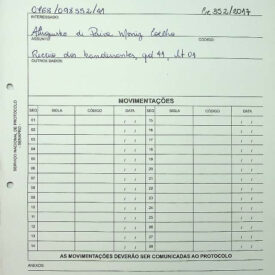 0768/098352/41 Cx 352/2017
INTERESSADO:
Augusto de Paiva Muniz Coelho
ASSUNTO: CÓDIGO:
Rua dos bandeirantes, qd 41, lt 01
OUTROS DADOS:
MOVIMENTAÇÕES
SEQ. SIGLA CÓDIGO DATA SEQ. SIGLA CÓDIGO DATA
01 / / 15 / /
02 / / 16 / /
03 / / 17 / /
04 / / 18 / /
05 / / 19 / /
06 / / 20 / /
07 / / 21 / /
08 / / 22 / /
09 / / 23 / /
10 / / 24 / /
11 / / 25 / /
12 / / 26 / /
13 / / 27 / /
14 / / 28 / /
AS MOVIMENTAÇÕES DEVERÃO SER COMUNICADAS AO PROTOCOLO
ANEXOS:
SERVIÇO NACIONAL DE PROTOCOLO